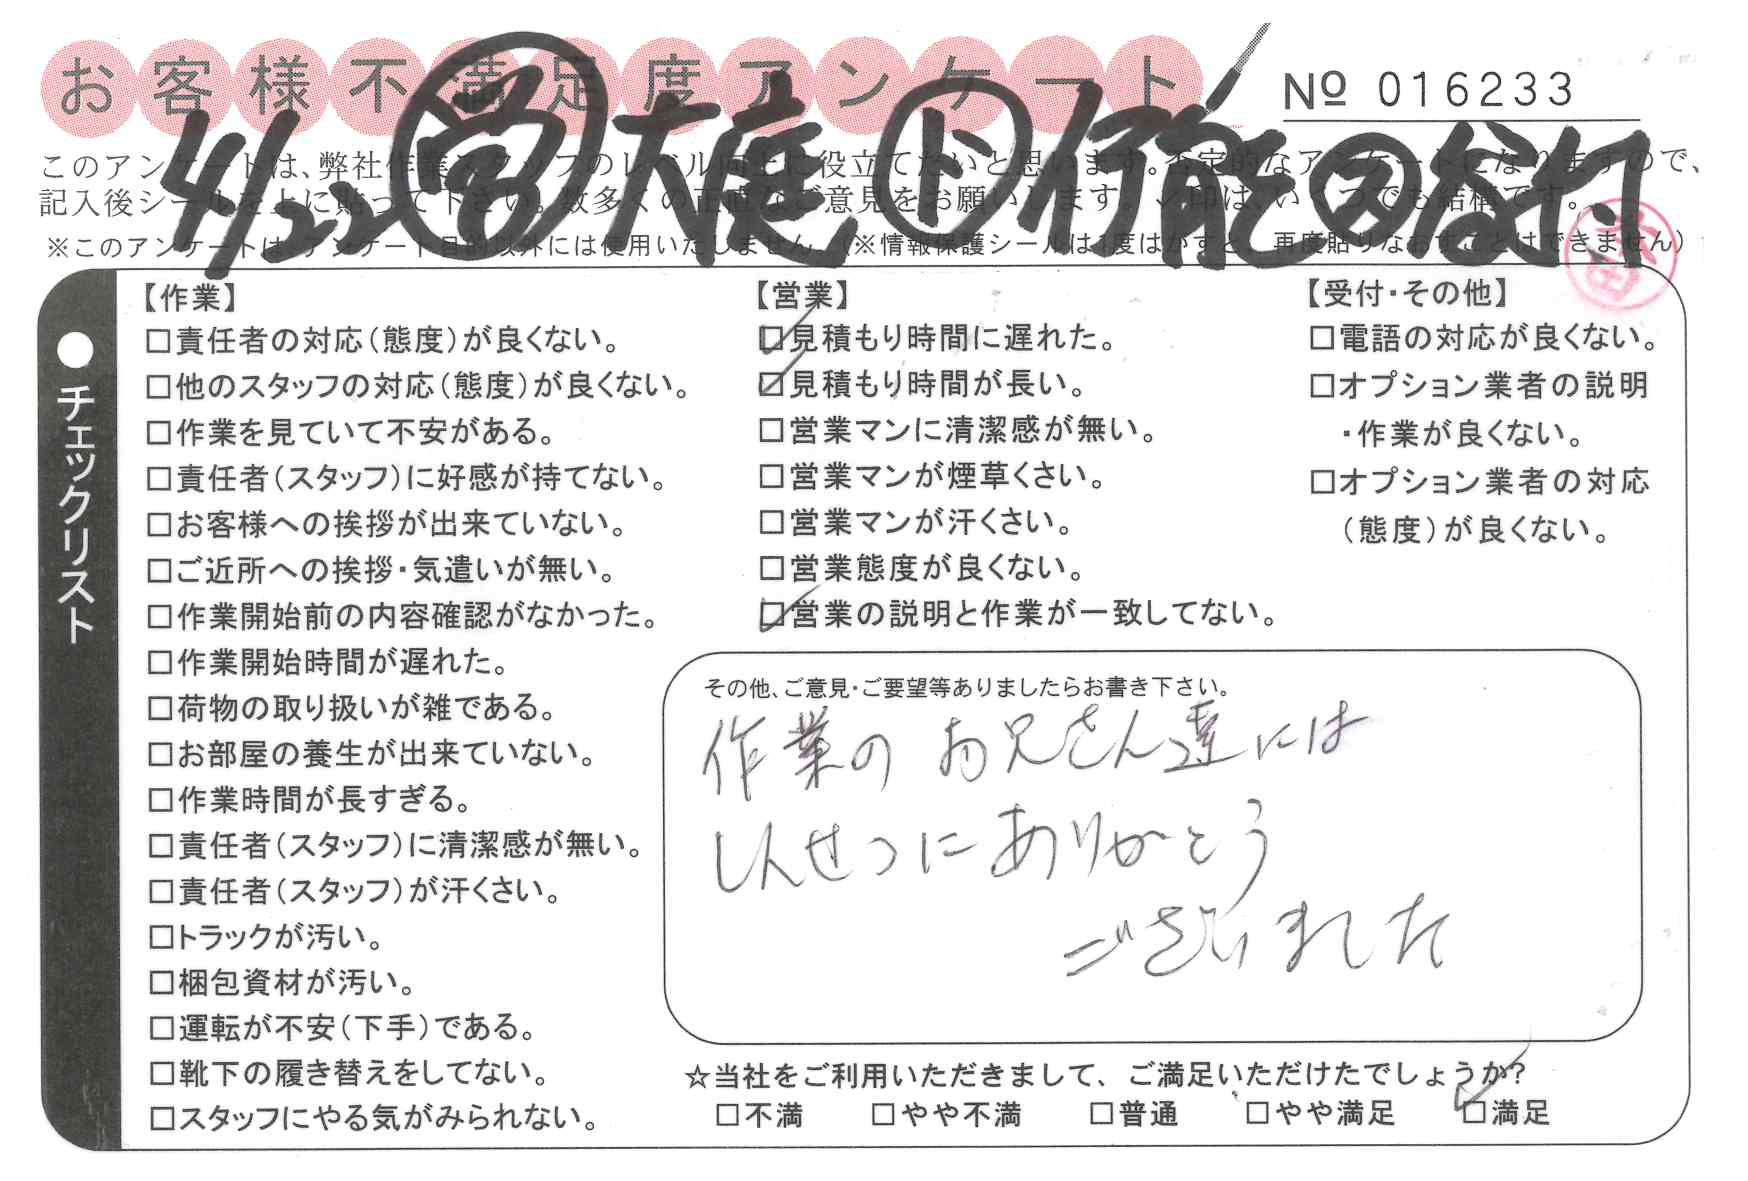 お客様不満足度アンケート
No 016233
4/22 営 大庭 ト 仔能 コ 谷村
このアンケートは、弊社作業スタッフのレベル向上に役立てたいと思います。否定的なアンケートになりますので、
記入後シールを上に貼って下さい。数多くの正直なご意見をお願いします。✓印は、いくつでも結構です。
※このアンケートは、アンケート目的以外には使用いたしません。(※情報保護シールは1度はがすと、再度貼りなおすことはできません)
●チェックリスト
【作業】
□責任者の対応(態度)が良くない。
□他のスタッフの対応(態度)が良くない。
□作業を見ていて不安がある。
□責任者(スタッフ)に好感が持てない。
□お客様への挨拶が出来ていない。
□ご近所への挨拶・気遣いが無い。
□作業開始前の内容確認がなかった。
□作業開始時間が遅れた。
□荷物の取り扱いが雑である。
□お部屋の養生が出来ていない。
□作業時間が長すぎる。
□責任者(スタッフ)に清潔感が無い。
□責任者(スタッフ)が汗くさい。
□トラックが汚い。
□梱包資材が汚い。
□運転が不安(下手)である。
□靴下の履き替えをしてない。
□スタッフにやる気がみられない。
【営業】
☑見積もり時間に遅れた。
☑見積もり時間が長い。
□営業マンに清潔感が無い。
□営業マンが煙草くさい。
□営業マンが汗くさい。
□営業態度が良くない。
☑営業の説明と作業が一致してない。
【受付・その他】
□電話の対応が良くない。
□オプション業者の説明
・作業が良くない。
□オプション業者の対応
(態度)が良くない。
その他、ご意見・ご要望等ありましたらお書き下さい。
作業のお兄さん達には
しんせつにありがとう
ございました
☆当社をご利用いただきまして、ご満足いただけたでしょうか?
□不満 □やや不満 □普通 □やや満足 ☑満足